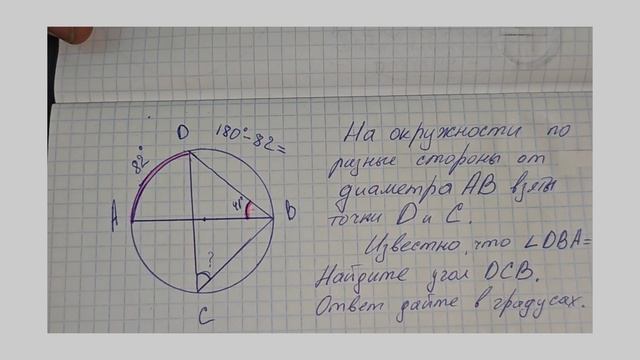 D
180°-82=
82°
A
41°
B
?
C
На окружности по
разные стороны от
диаметра AB взяты
точки D и C.
Известно, что ∠DBA=
Найдите угол DCB.
Ответ дайте в градусах.